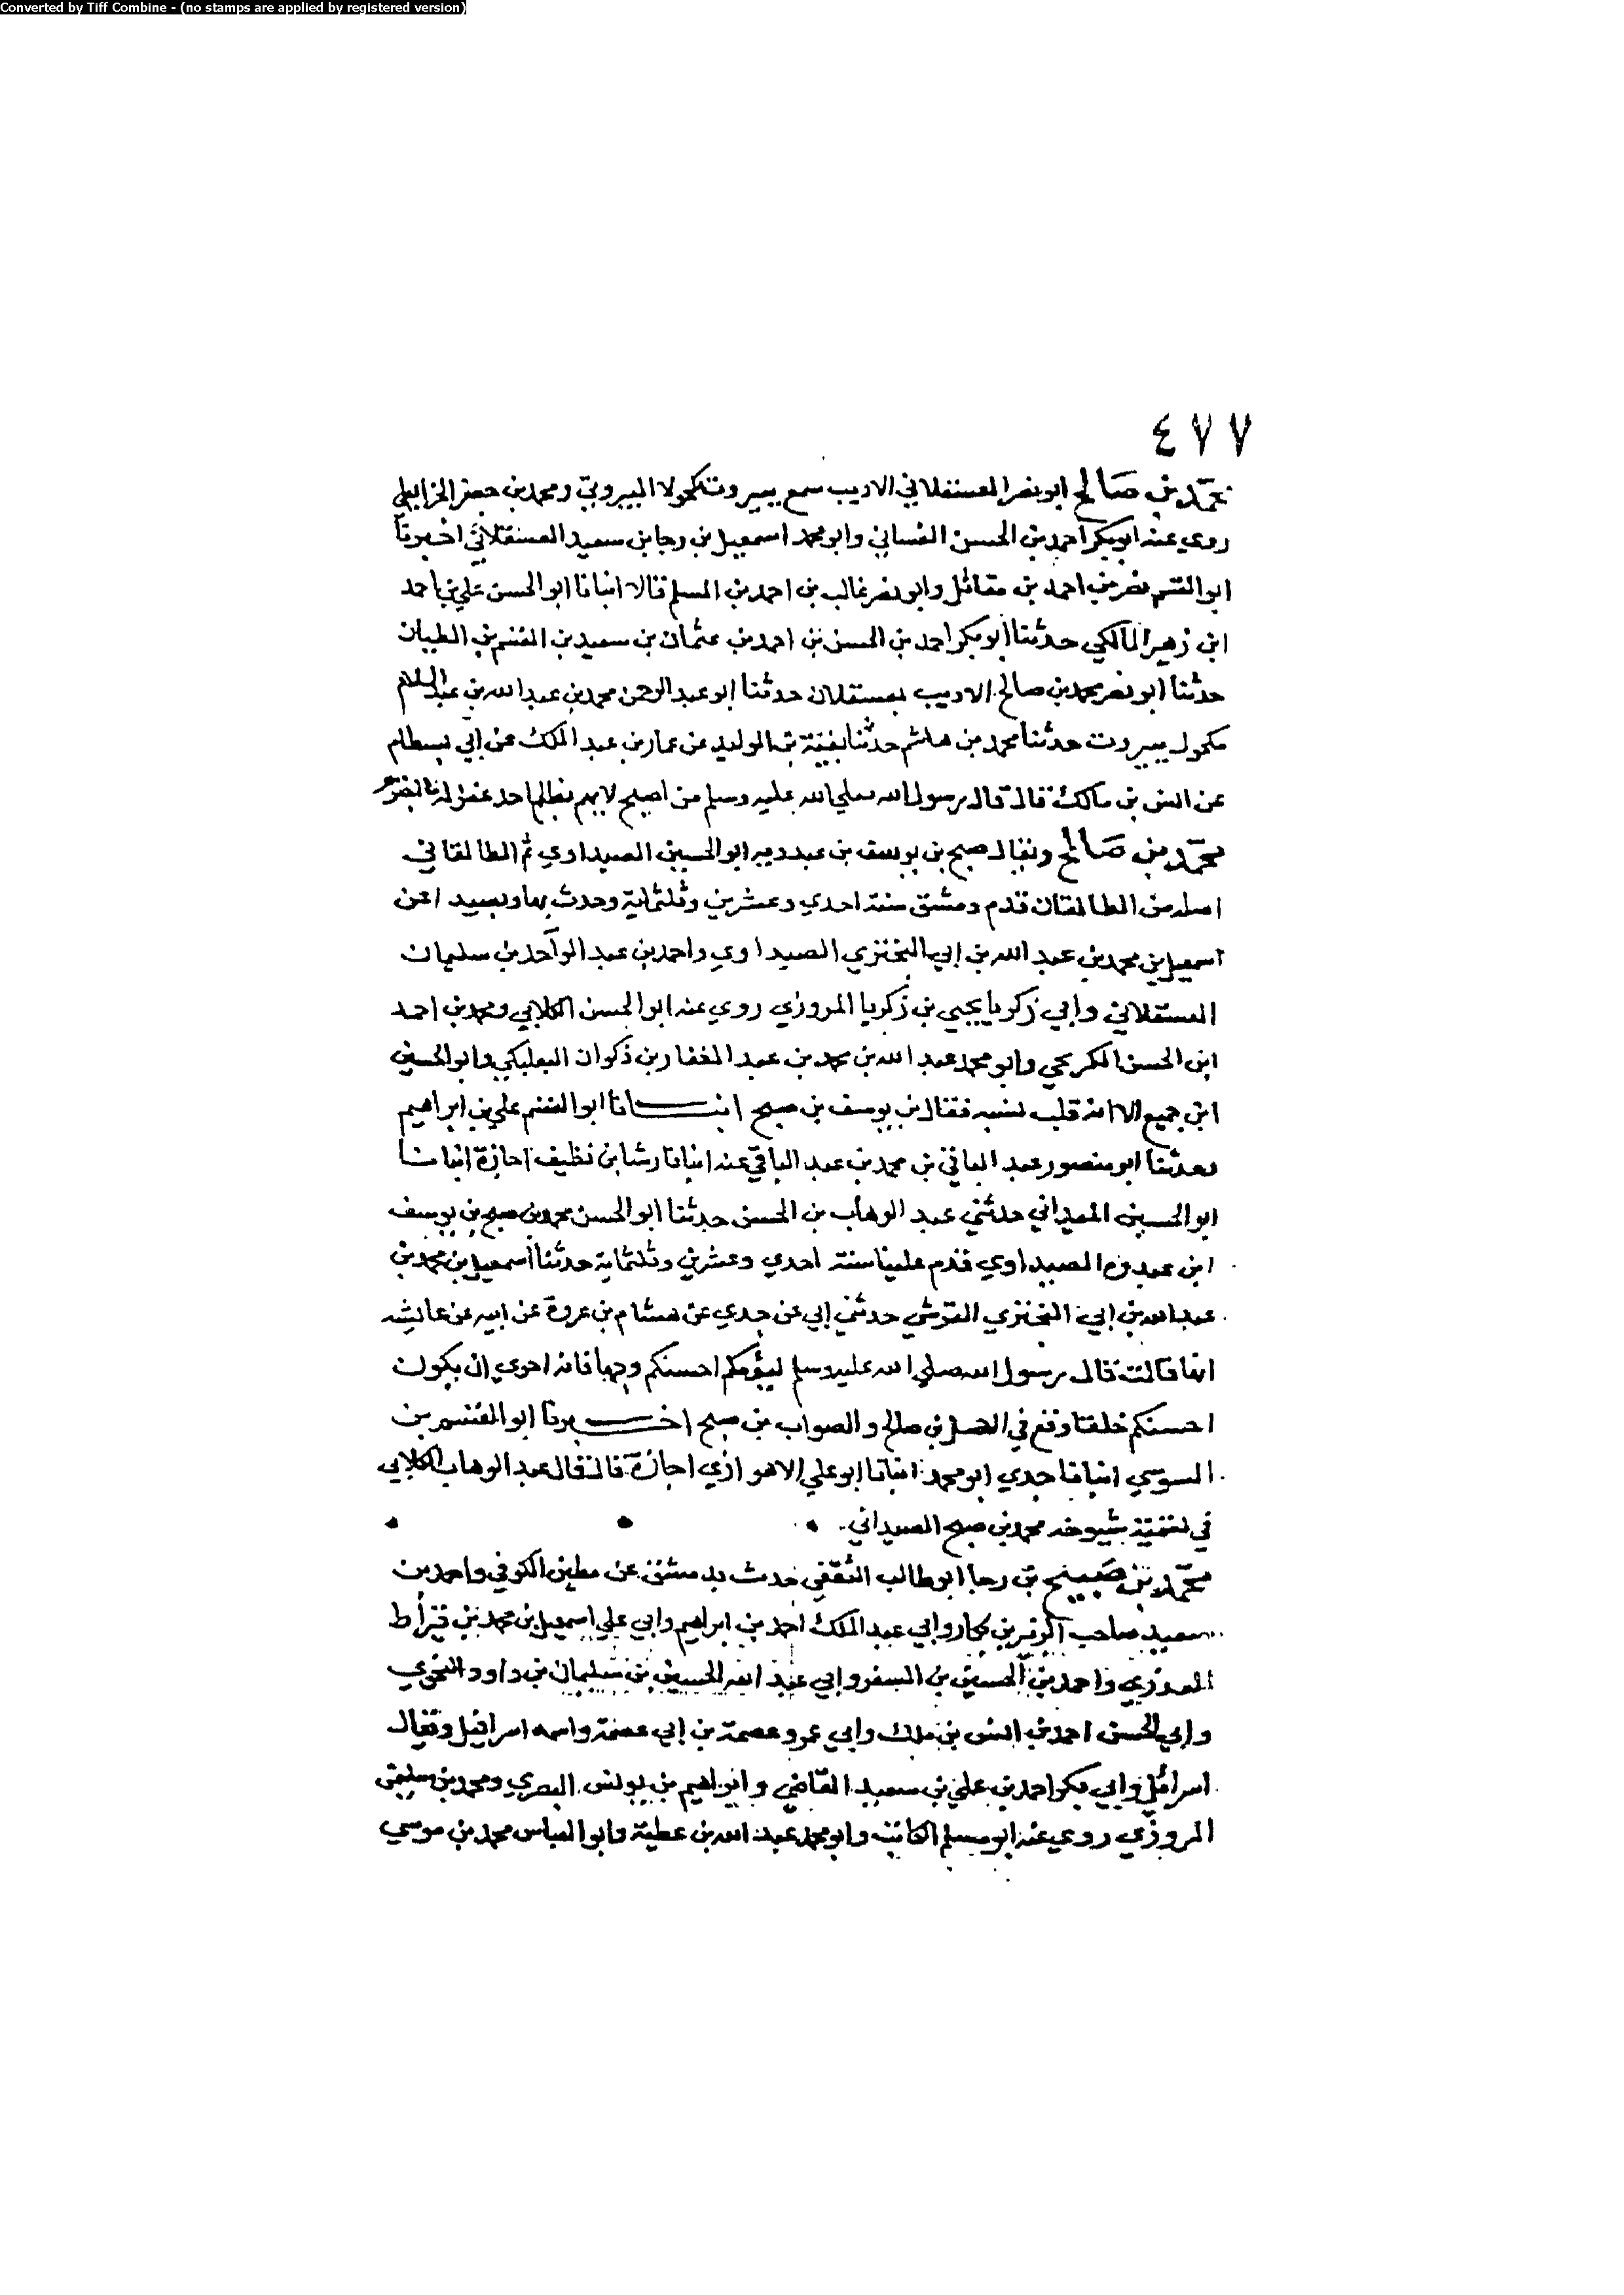 Converted by Tiff Combine - (no stamps are applied by registered version)
٤٧٧
محمد بن صالح ابو نصر العسقلاني الاديب سمع ببيروت مكحولا البيروتي ومحمد بن جعفر الخرايطي
روي عنه ابو بكر احمد بن الحسن الغساني وابو محمد اسمعيل بن رجا بن سعيد العسقلاني اخبرنا
ابو القسم نصر بن احمد بن مقاتل وابو نصر غالب بن احمد بن المسلم قالا انبانا ابو الحسن علي بن احمد
ابن زهير المالكي حدثنا ابو بكر احمد بن الحسن بن احمد بن عثمان بن سعيد بن القسم بن الطيان
حدثنا ابو نصر محمد بن صالح الاديب بعسقلان حدثنا ابو عبد الرحمن محمد بن عبد الله بن عبد السلام
مكحول ببيروت حدثنا محمد بن هاشم حدثنا بقية بن الوليد عن عمار بن عبد الملك عن ابي بسطام
عن انس بن مالك قال قال رسول الله صلي الله عليه وسلم من اصبح لا يهم بظلم احد غفر له
محمد بن صالح ويقال صبح بن يوسف بن عبدويه ابو الحسين الصيداوي ثم الطالقاني
اصله من الطالقان قدم دمشق سنة احدي وعشرين وثلثماية وحدث بها وبصيدا عن
اسمعيل بن محمد بن عبد الله بن ابي البختري الصيداوي واحمد بن عبد الواحد بن سليمان
العسقلاني وابي زكريا يحيي بن زكريا المروزي روي عنه ابو الحسن الكلابي ومحمد بن احمد
ابن الحسن الكرجي وابو محمد عبد الله بن محمد بن عبد الغفار بن ذكوان البعلبكي وابو الحسين
ابن جميع الا انه قلب نسبه فقال بن يوسف بن صبح انبانا ابو القسم علي بن ابراهيم
وحدثنا ابو منصور عبد الباقي بن محمد بن عبد الباقي عنه انبانا رشا بن نظيف اجازة انبانا
ابو الحسين الميداني حدثني عبد الوهاب بن الحسن حدثنا ابو الحسن محمد بن صبح بن يوسف
ابن عبدويه الصيداوي قدم علينا سنة احدي وعشرين وثلثماية حدثنا اسمعيل بن محمد بن
عبد الله بن ابي البختري القرشي حدثني ابي عن جدي عن هشام بن عروة عن ابيه عن عايشه
انها قالت قال رسول الله صلي الله عليه وسلم ليؤمكم احسنكم وجها فانه احري ان يكون
احسنكم خلقا وقع في الاصل بن صالح والصواب بن صبح اخبرنا ابو القسم بن
السوسي انبانا جدي ابو محمد انبانا ابو علي الاهوازي اجازة قال قال عبد الوهاب الكلابي
في تسمية شيوخه محمد بن صبح الصيداني
محمد بن صبيح بن رجا ابو طالب الثقفي حدث بدمشق عن مطين الكوفي واحمد بن
سعيد صاحب الزبير بن بكار وابي عبد الملك احمد بن ابراهيم وابي علي اسمعيل بن محمد بن قيراط
العذري واحمد بن الحسين بن السفر وابي عبد الله الحسين بن سليمان بن داود النحوي
وابي الحسن احمد بن انس بن ملك وابي عمرو عصمة بن ابي عصمة واسمه اسرائيل ويقال
اسرافيل وابي بكر احمد بن علي بن سعيد القاضي وابراهيم بن يونس البصري ومحمد بن
المروزي روي عنه ابو مسلم الكاتب وابو محمد عبد الله بن عطية وابو العباس محمد بن موسي